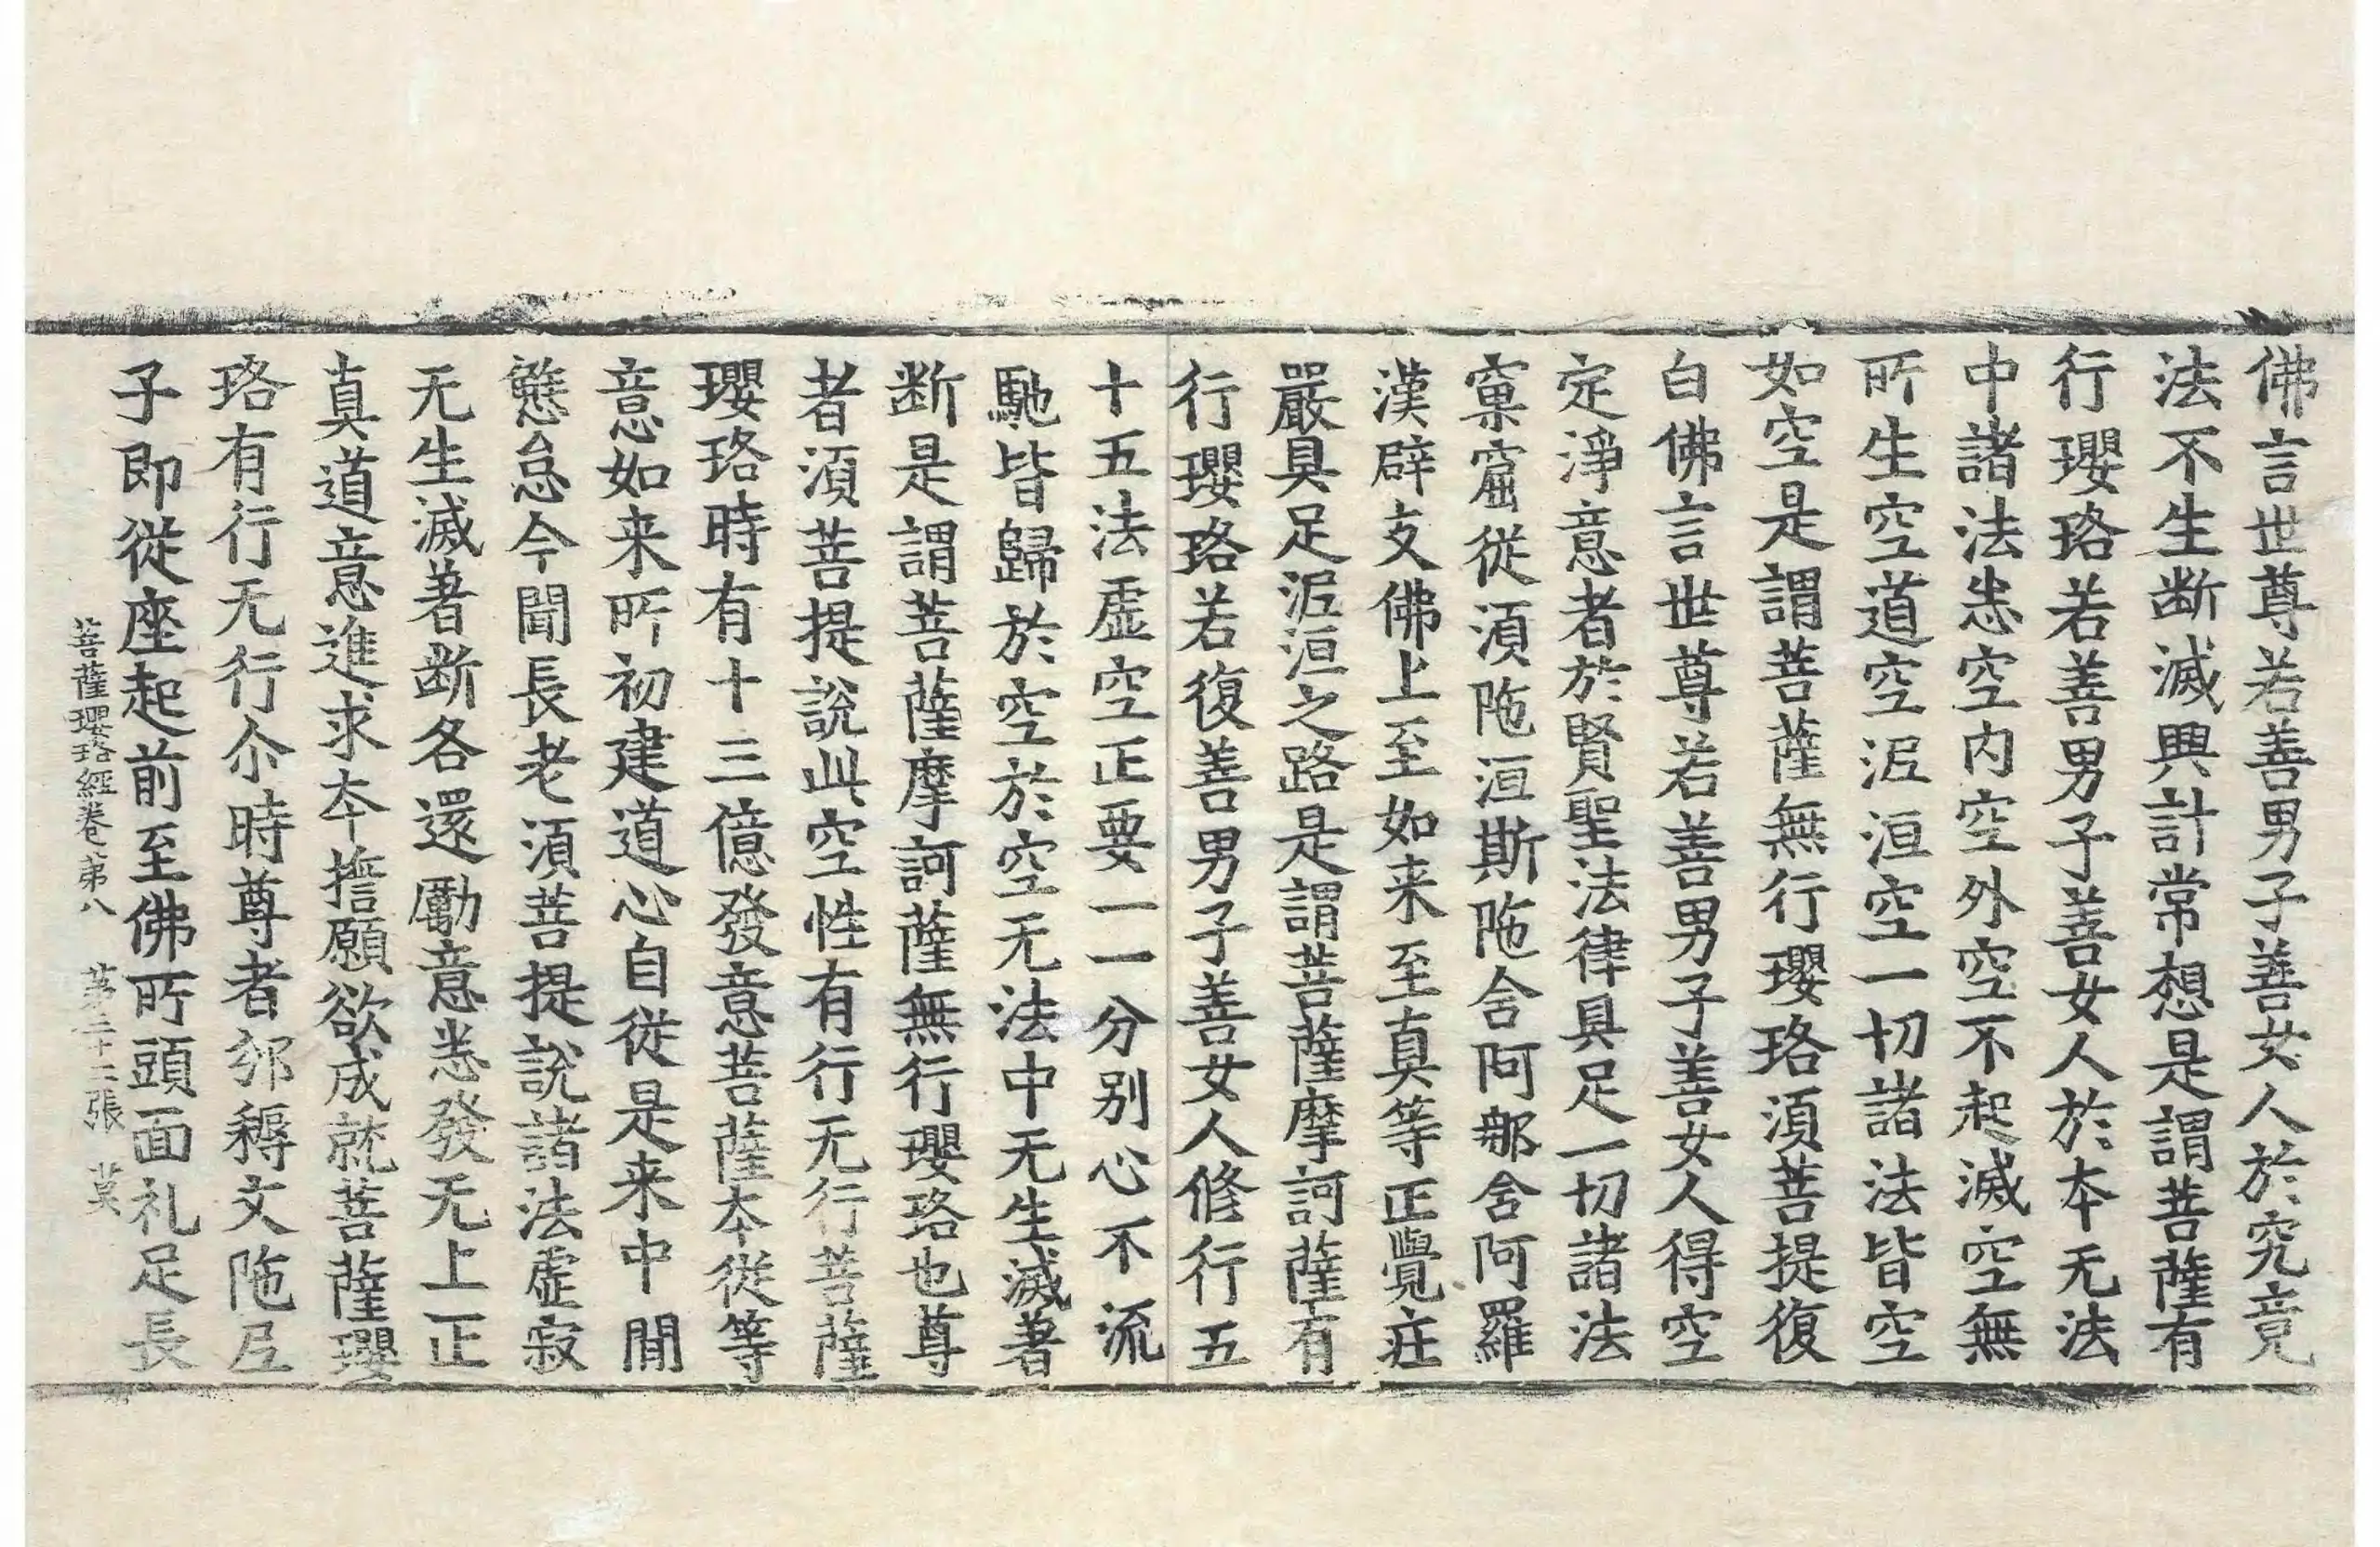 佛言世尊若善男子善女人於究竟
法不生断滅興計常想是謂菩薩有
行瓔珞若善男子善女人於本无法
中諸法悉空内空外空不起滅空無
所生空道空泥洹空一切諸法皆空
如空是謂菩薩無行瓔珞須菩提復
白佛言世尊若善男子善女人得空
定淨意者於賢聖法律具足一切諸法
窠窟從須陁洹斯陁含阿那含阿羅
漢辟支佛上至如来至真等正覺莊
嚴具足泥洹之路是謂菩薩摩訶薩有
行瓔珞若復善男子善女人修行五
十五法虛空正要一一分別心不流
馳皆歸於空於空无法中无生滅著
断是謂菩薩摩訶薩無行瓔珞也尊
者須菩提說此空性有行无行菩薩
瓔珞時有十三億發意菩薩本從等
意如来所初建道心自從是来中間
懈怠今聞長老須菩提說諸法虛寂
无生滅著断各還勵意悉發无上正
真道意進求本擔願欲成就菩薩瓔
珞有行无行尒時尊者邠耨文陁尼
子即從座起前至佛所頭面礼足長
菩薩瓔珞經卷第八 第二十二張 莫